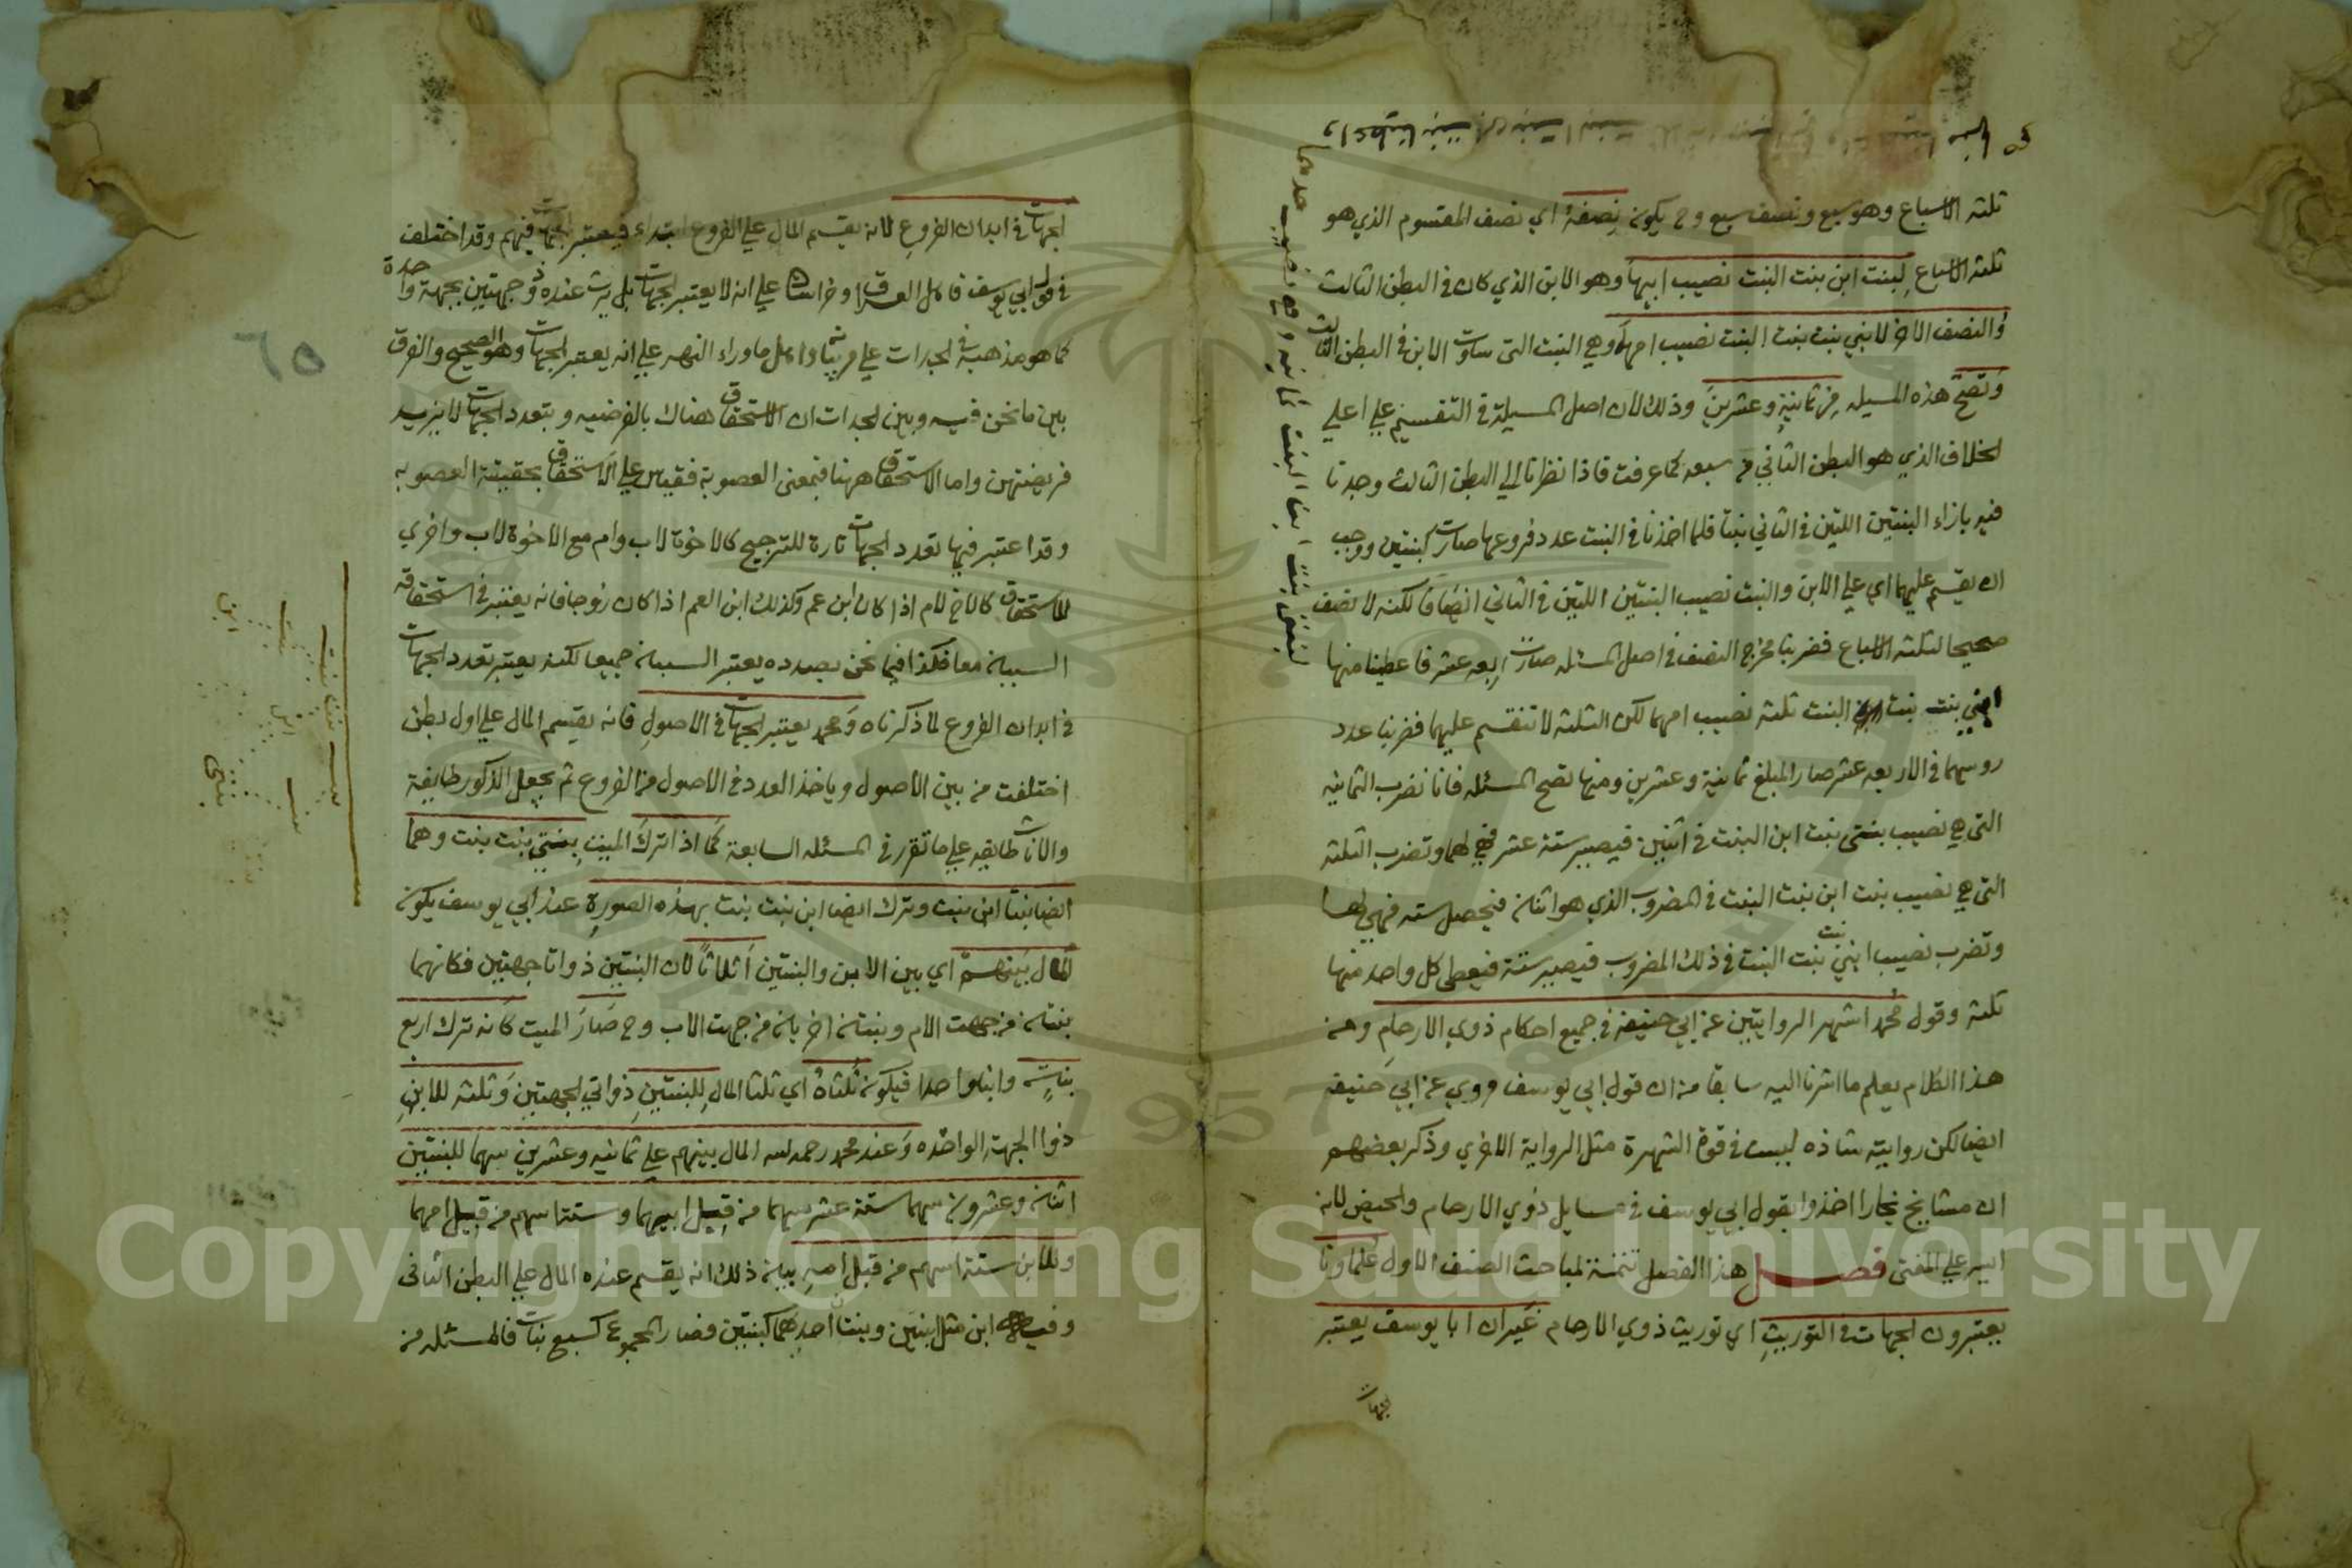 ثلثه الاسباع وهو سبع ونصف سبع وح يكون نصفهٔ اي نصف المقسوم الذي هو
ثلثه الاسباع لبنت ابن بنت البنت نصيب ابيها وهو الابن الذي كان في البطن الثالث
والنصف الاخر لابني بنت بنت البنت نصيب امهما وهي البنت التي ساوت الابن في البطن الثالث
وتصح هذه المسيله من ثمانية وعشرين وذلك لان اصل المسيلة في التقسيم علي اعلي
الخلاف الذي هو البطن الثاني من سبعه كما عرفت فاذا نظرنا الي البطن الثالث وجدنا
فيه بازاء البنتين اللتين في الثاني بنتا فلما اخذنا في البنت عدد فروعها صارت كبنتين ووجب
ان يقسم عليهما اي علي الابن والبنت نصيب البنتين اللتين في الثاني انصافا لكنه لا نصف
صحيحا لثلثه الاسباع فضربنا مخرج النصف في اصل المسئله صارت اربعه عشر فاعطينا منها
ابني بنت بنت البنت ثلثه نصيب امهما لكن الثلثه لا تنقسم عليهما فضربنا عدد
روسهما في الاربعه عشر صار المبلغ ثمانية وعشرين ومنها تصح المسئله فانا نضرب الثمانيه
التي هي نصيب بنتي بنت ابن البنت في اثنين فيصير ستة عشر فهي لهما وتضرب الثلثه
التي هي نصيب بنت ابن بنت البنت في المضروب الذي هو اثنان فيحصل سته فهي لها
وتضرب نصيب ابني بنت بنت البنت في ذلك المضروب فيصير ستة فيعطي كل واحد منها
ثلثه وقول محمد اشهر الروايتين عن ابي حنيفه في جميع احكام ذوي الارحام ومن
هذا الكلام يعلم ما اشرنا اليه سابقا من ان قول ابي يوسف روي عن ابي حنيفه
ايضا لكن رواية شاذه ليست في قوة الشهرة مثل الرواية الاخري وذكر بعضهم
ان مشايخ بخارا اخذوا بقول ابي يوسف في مسايل ذوي الارحام والحيض لانه
ايسر علي المفتى فصل هذا الفصل تتمة لمباحث الصنف الاول علماونا
يعتبرون الجهات في التوريث اي توريث ذوي الارحام غير ان ابا يوسف يعتبر
الجهات
٦٥
الجهات في ابدان الفروع لانه يقسم المال علي الفروع ابتداء فيعتبر الجهات فيهم وقد اختلف
في قول ابي يوسف فاهل العراق وخراسان علي انه لا يعتبر الجهات بل يرث عنده ذو جهتين بجهة واحدة
كما هو مذهبه في الجدات علي مر بيانه واهل ماوراء النهر علي انه يعتبر الجهات وهو الصحيح والفرق
بين ما نحن فيه وبين الجدات ان الاستحقاق هناك بالفرضيه وبتعدد الجهات لا يزيد
فريضتهن واما الاستحقاق ههنا فبمعنى العصوبة فقياس علي الاستحقاق بحقيقة العصوبه
وقد اعتبر فيها تعدد الجهات تارة للترجيح كالاخوة لاب وام مع الاخوة لاب واخري
للاستحقاق كالاخ لام اذا كان ابن عم وكذلك ابن العم اذا كان زوجا فانه يعتبر في استحقاقه
السببان معا فكذا فيما نحن بصدده يعتبر السببان جميعا لكنه يعتبر تعدد الجهات
في ابدان الفروع لما ذكرناه ومحمد يعتبر الجهات في الاصول فانه يقسم المال علي اول بطن
اختلفت من بين الاصول وياخذ العدد في الاصول من الفروع ثم يجعل الذكور طايفة
والاناث طايفه علي ما تقرر في المسئله السابعة كما اذا ترك الميت بنتي بنت بنت وهما
ايضا بنتا ابن بنت وترك ايضا ابن بنت بنت بهذه الصورة عند ابي يوسف يكون
المال بينهم اي بين الابن والبنتين اثلاثا لان البنتين ذواتا جهتين فكانهما
بنتان من جهت الام وبنتان اخريان من جهت الاب وح صار الميت كانه ترك اربع
بنات وابنا واحدا فيكون ثلثاه اي ثلثا المال للبنتين ذواتي الجهتين وثلثه للابن
ذوا الجهه الواحده وعند محمد رحمه الله المال بينهم علي ثمانيه وعشرين سهما للبنتين
اثنان وعشرون سهما ستة عشر سهما من قبل ابيهما وستة اسهم من قبل امهما
وللابن ستة اسهم من قبل امه بيان ذلك انه يقسم عنده المال علي البطن الثاني
وفيه ابن مثل ابنتين وبنتا احدهما كبنتين فصار المجموع كسبع بنات فالمسئله من
Copyright © King Saud University
1957